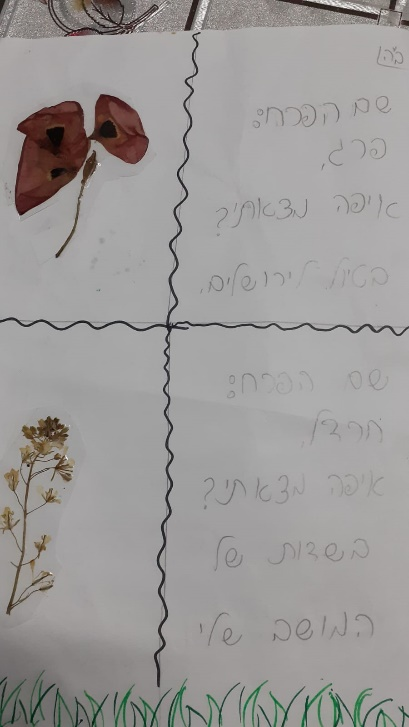 ב"ה
שם הפרח:
פרג,
איפה מצאתי?
בטיול לירושלים.
שם הפרח:
חרדל,
איפה מצאתי?
בשדות של
המושב שלי